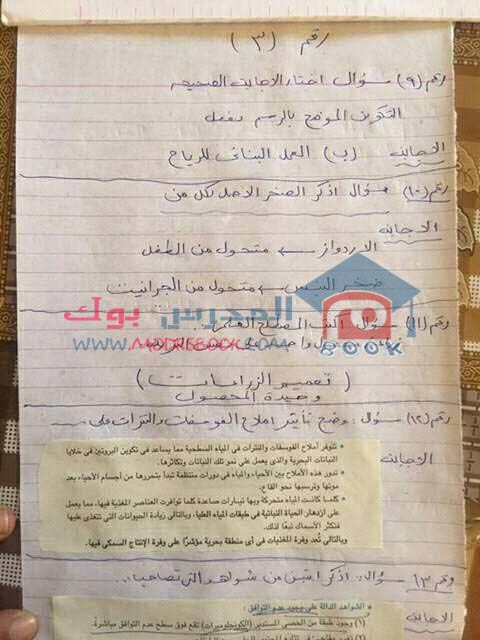 رقم (٣)
رقم (٩) سؤال اختار الاجابة الصحيحه
التكوين الموضح بالرسم بفعل
الاجابة (ب) العمل البنائى للرياح
رقم (١٠) سؤال اذكر الصخر الاصل لكل من
الاجابه
الاردواز ← متحول من الطفل
صخر النيس ← متحول من الجرانيت
المدرس بوك
رقم (١١) سؤال اكتب المصطلح العلمى
WWW.MODRSBOOK.COM
BOOK
(تعميم الزراعات)
وحيدة المحصول
رقم (١٢) سؤال: وضح تأثير املاح الفوسفات والنترات على
الاجابة
• تتوفر أملاح الفوسفات والنترات فى المياه السطحية مما يساعد فى تكوين البروتين فى خلايا
النباتات البحرية والذى يعمل على نمو تلك النباتات وتكاثرها.
• تدور هذه الأملاح بين الأحياء والمياه فى دورات منتظمة تبدأ بتحررها من أجسام الأحياء بعد
موتها وترسبها نحو القاع.
• كلما كانت المياه متحركة وبها تيارات صاعدة كلما توافرت العناصر المغذية فيها، مما يعمل
على ازدهار الحياة النباتية فى طبقات المياه العليا، وبالتالى زيادة الحيوانات التى تتغذى عليها
فتكثر الأسماك تبعًا لذلك.
وبالتالى تُعد وفرة المغذيات فى أى منطقة بحرية مؤشرًا على وفرة الإنتاج السمكى فيها.
رقم ١٣) سؤال: اذكر اثنين من شواهد التى تصاحب..
الاجابة
• الشواهد الدالة على وجود عدم التوافق:
(١) وجود طبقة من الحصى المستدير (الكونجلوميرات) تقع فوق سطح عدم التوافق مباشرة.